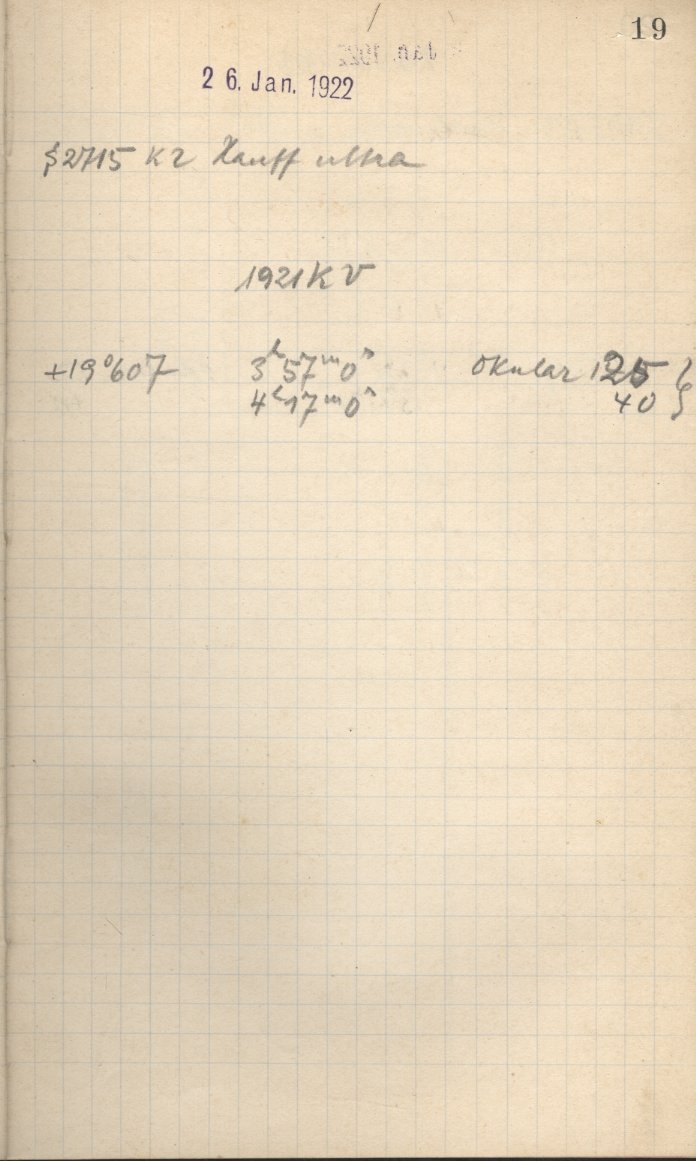 19
26. Jan. 1922
2715 K2 Hauff ultra
1921 KV
+19°607 3ʰ57ᵐ0ˢ Okular 125
4ʰ17ᵐ0ˢ 40 }